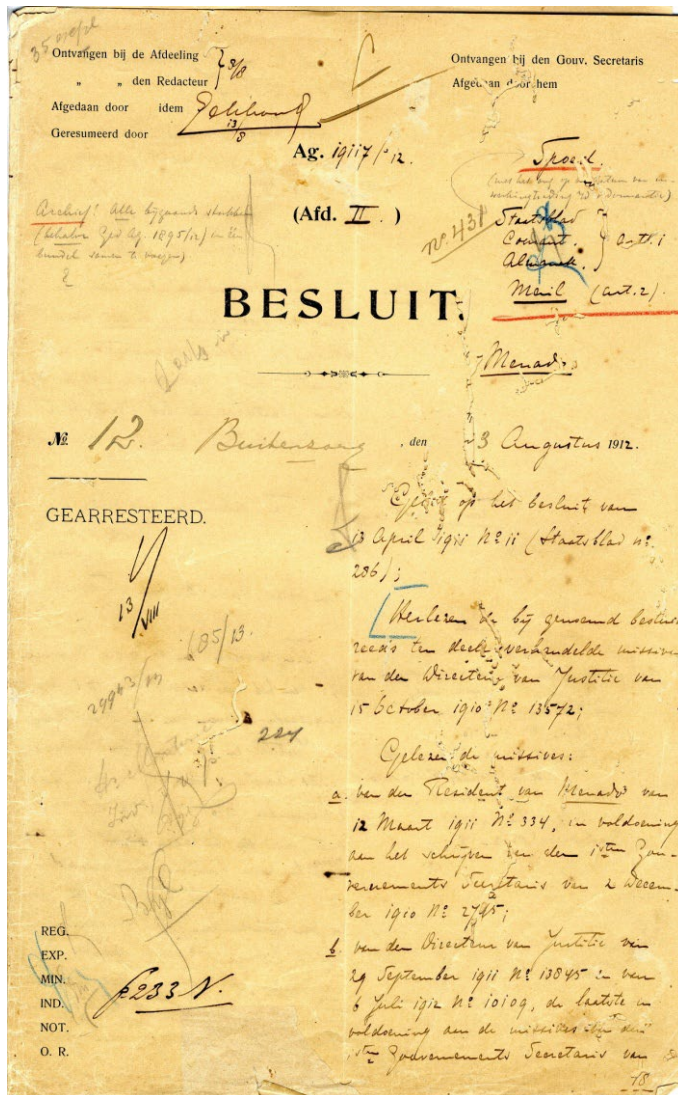 Ontvangen bij de Afdeeling
" " den Redacteur } 8/8
Afgedaan door idem
13/8
Geresumeerd door
Ontvangen bij den Gouv. Secretaris
Afgedaan door hem
Ag. 19117/12.
(Afd. II.)
Spoed.
Staatsblad
Courant. } art. 1
Almanak.
Mail (art. 2).
no. 431
Archief! Alle bijgaande stukken
(behalve Ag. 1895/12) in één
bundel samen te voegen)
BESLUIT.
Menado
No. 12. Buitenzorg, den 3 Augustus 1912.
GEARRESTEERD.
13/VIII
185/13.
29943/
224
Gelet op het besluit van
13 April 1911 No 11 (Staatsblad no.
286);
Herlezen de bij genoemd besluit
reeds ten deele verhandelde missive
van den Directeur van Justitie van
15 October 1910 No 13572;
Gelezen de missives:
a. van den Resident van Menado van
12 Maart 1911 No 334, in voldoening
aan het schrijven van den 1sten Gou-
vernements Secretaris van 2 Decem-
ber 1910 No
b. van den Directeur van Justitie van
29 September 1911 No 13845 en van
6 Juli 1912 No 10109, de laatste in
voldoening aan de missives van den
1sten Gouvernements Secretaris van
18
REG.
EXP.
MIN.
IND.
NOT.
O. R.
233 N.